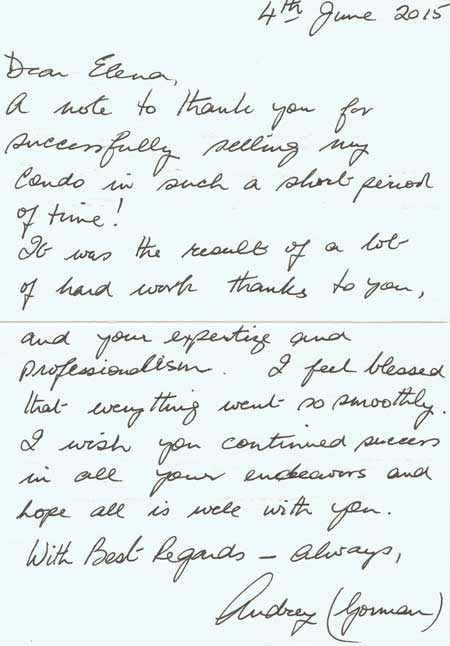 4th June 2015
Dear Elena,
A note to thank you for
successfully selling my
Condo in such a short period
of time!
It was the result of a lot
of hard work thanks to you,
and your expertize and
professionalism. I feel blessed
that everything went so smoothly.
I wish you continued success
in all your endeavors and
hope all is well with you.
With Best Regards – always,
Audrey (Gorman)